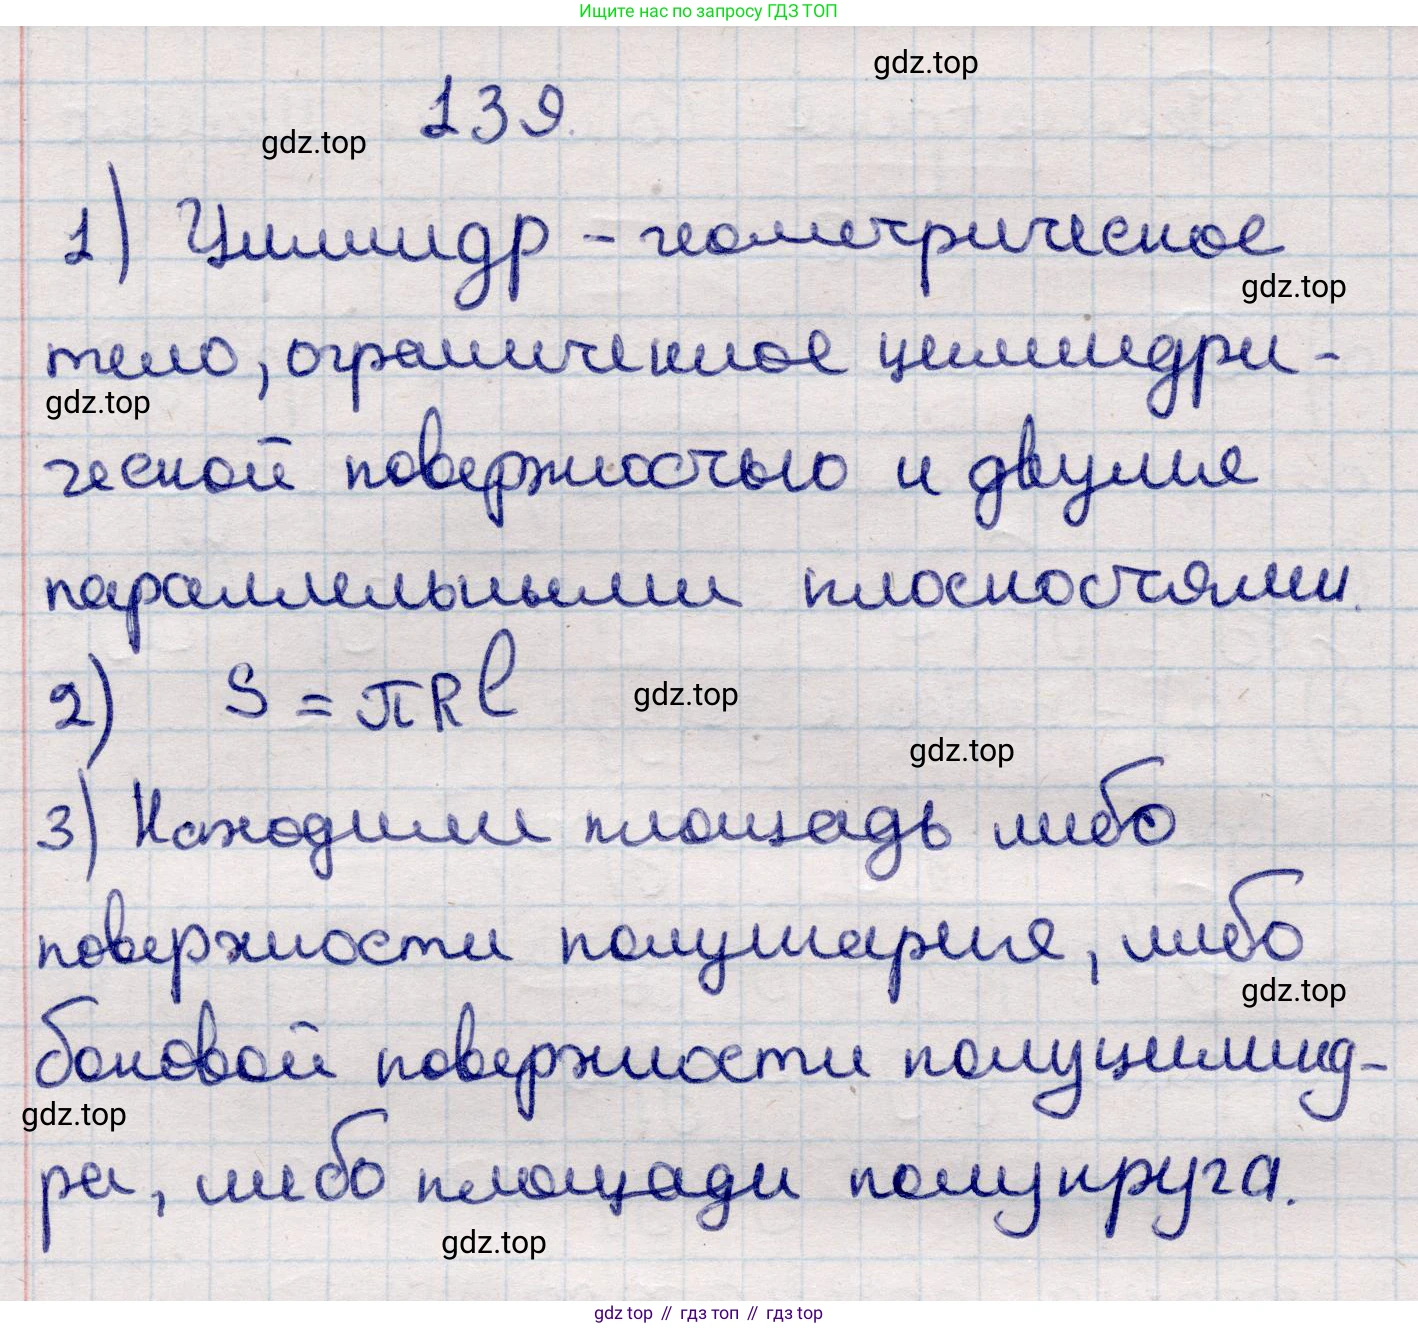 Ищите нас по запросу ГДЗ ТОП
gdz.top
139.
gdz.top
1) Цилиндр - геометрическое
gdz.top
тело, ограниченное цилиндри-
gdz.top
ческой поверхностью и двумя
параллельными плоскостями.
2) S = πRl
gdz.top
gdz.top
3) Находим площадь либо
поверхности полушария, либо
gdz.top
боковой поверхности полуцилинд-
gdz.top
ра, либо площади полукруга.
gdz.top
gdz top // гдз топ // гдз top